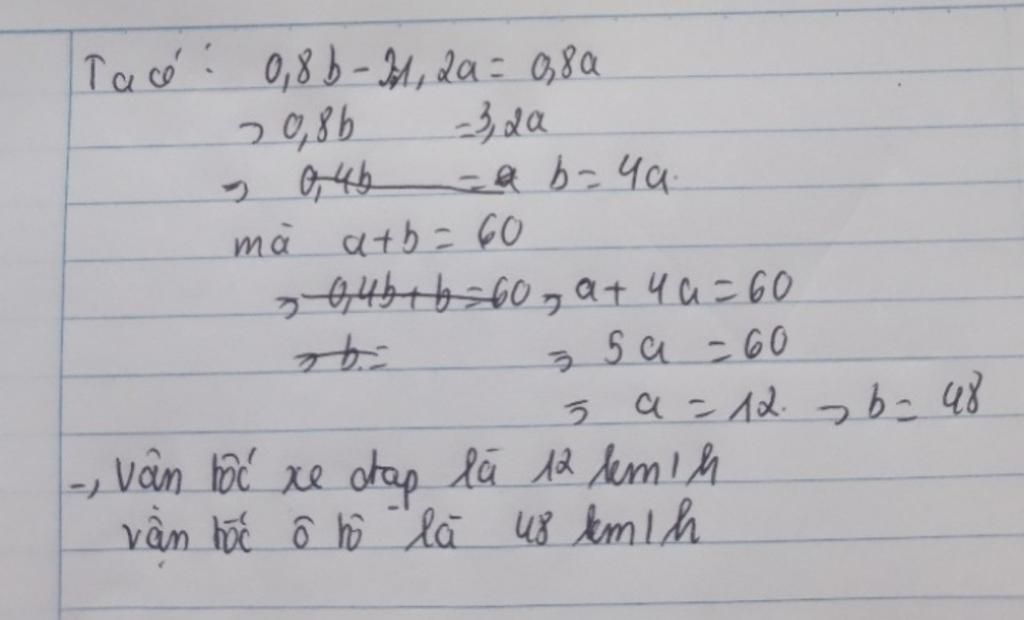 Ta có: 0,8b - 21,2a = 0,8a
→ 0,8b = 3,2a
→ 0,4b = a b = 4a.
mà a+b = 60
→ 0,4b + b = 60 → a + 4a = 60
→ b = → 5a = 60
→ a = 12. → b = 48
→ Vận tốc xe đạp là 12 km/h
vận tốc ô tô là 48 km/h